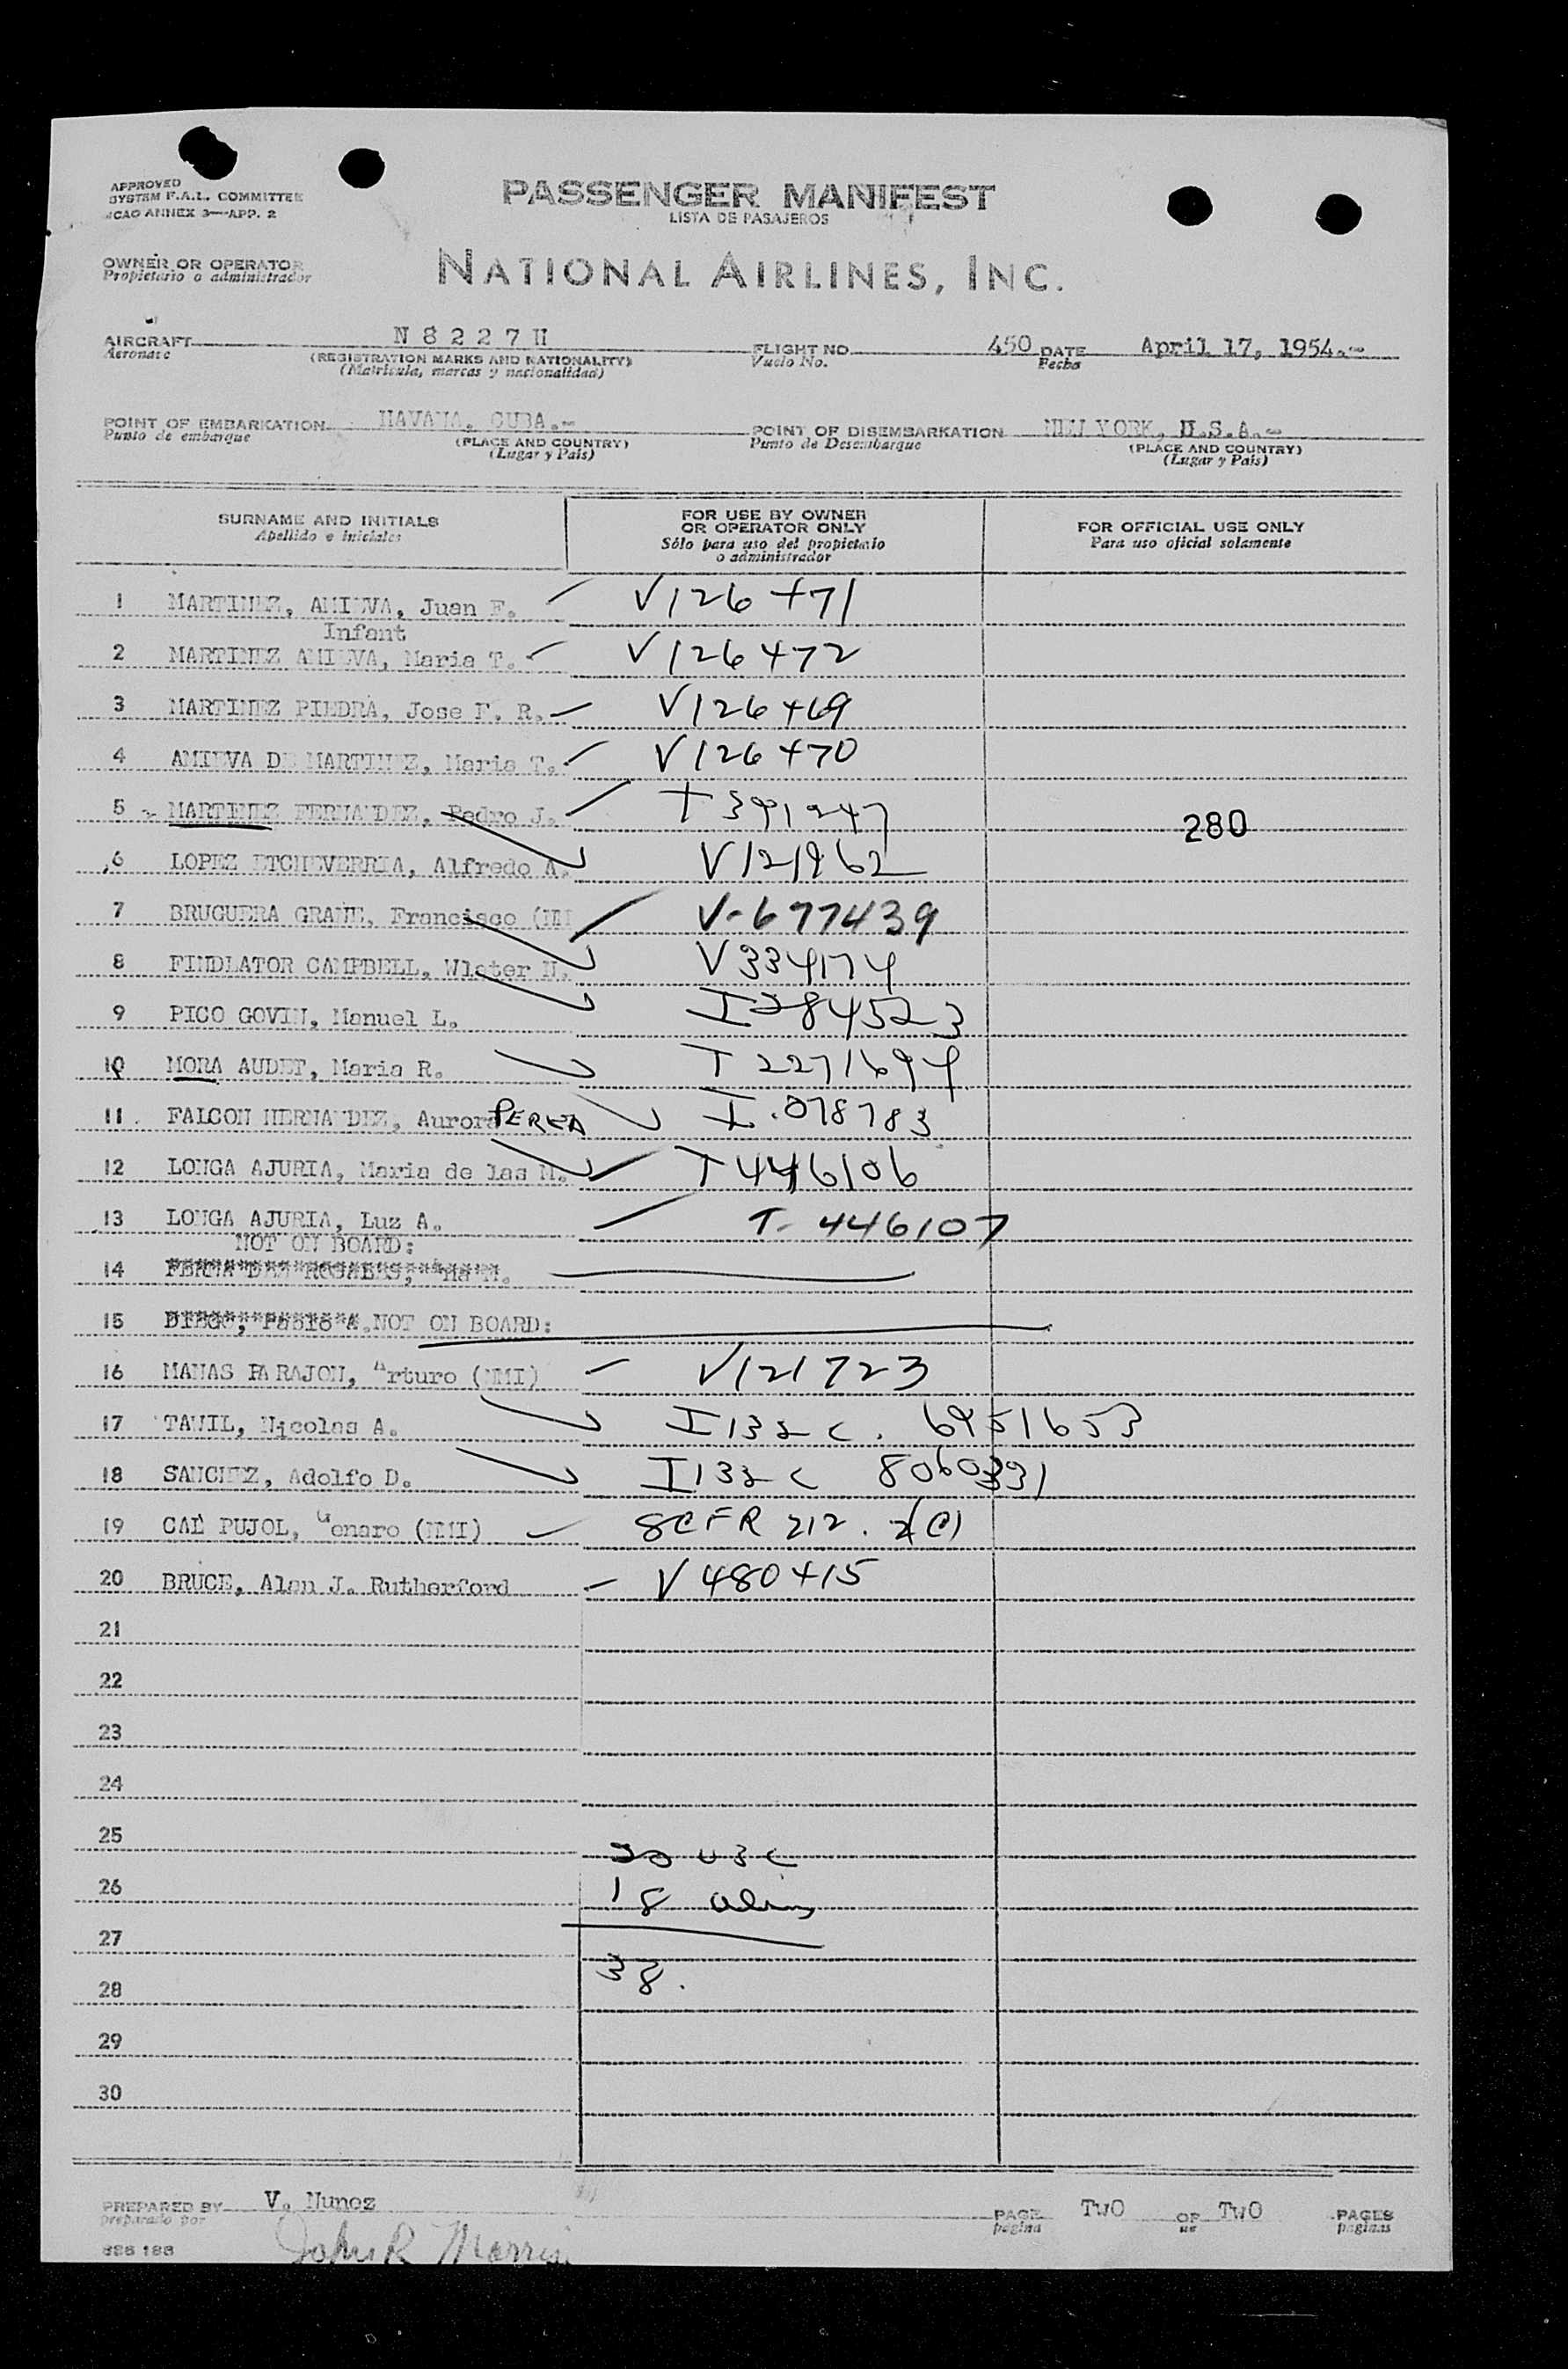 APPROVED
SYSTEM F.A.L. COMMITTEE
ICAO ANNEX 3—APP. 2
PASSENGER MANIFEST
LISTA DE PASAJEROS
OWNER OR OPERATOR
Propietario o administrador
NATIONAL AIRLINES, INC.
AIRCRAFT N 8 2 2 7 H FLIGHT NO. 450 DATE April 17, 1954.-
Aeronave (REGISTRATION MARKS AND NATIONALITY) Vuelo No. Fecha
(Matricula, marcas y nacionalidad)
POINT OF EMBARKATION HAVANA, CUBA.- POINT OF DISEMBARKATION NEW YORK, U.S.A.-
Punto de embarque (PLACE AND COUNTRY) Punto de Desembarque (PLACE AND COUNTRY)
(Lugar y Pais) (Lugar y Pais)
SURNAME AND INITIALS FOR USE BY OWNER OR OPERATOR ONLY FOR OFFICIAL USE ONLY
Apellido e iniciales Sólo para uso del propietario o administrador Para uso oficial solamente
1 MARTINEZ, AMIEVA, Juan F. V126471
Infant
2 MARTINEZ AMIEVA, Maria T. V126472
3 MARTINEZ PIEDRA, Jose F. R. V126469
4 AMIEVA DE MARTINEZ, Maria T. V126470
5 MARTINEZ FERNANDEZ, Pedro J. T391247 280
6 LOPEZ ETCHEVERRIA, Alfredo A. V121962
7 BRUGUERA GRANE, Francisco V-677439
8 FINDLATOR CAMPBELL, Wlater N. V334174
9 PICO GOVIN, Manuel L. I284523
10 MORA AUDET, Maria R. T2271694
11 FALCON HERNANDEZ, Aurora PEREA I.078783
12 LONGA AJURIA, Maria de las M. T446106
13 LONGA AJURIA, Luz A. T-446107
NOT ON BOARD:
14
15 NOT ON BOARD:
16 MANAS PARAJON, Arturo (NMI) V121723
17 TAWIL, Nicolas A. I132 C. 6951653
18 SANCHEZ, Adolfo D. I132 C 8060391
19 CAE PUJOL, Genaro (NMI) 8CFR 212.2(C)
20 BRUCE, Alan J. Rutherford V480415
21
22
23
24
25 20 USC
26 18 alins
27
28 38.
29
30
PREPARED BY V. Nunez PAGE TWO OF TWO PAGES
preparado por pagina de paginas
John R Morris